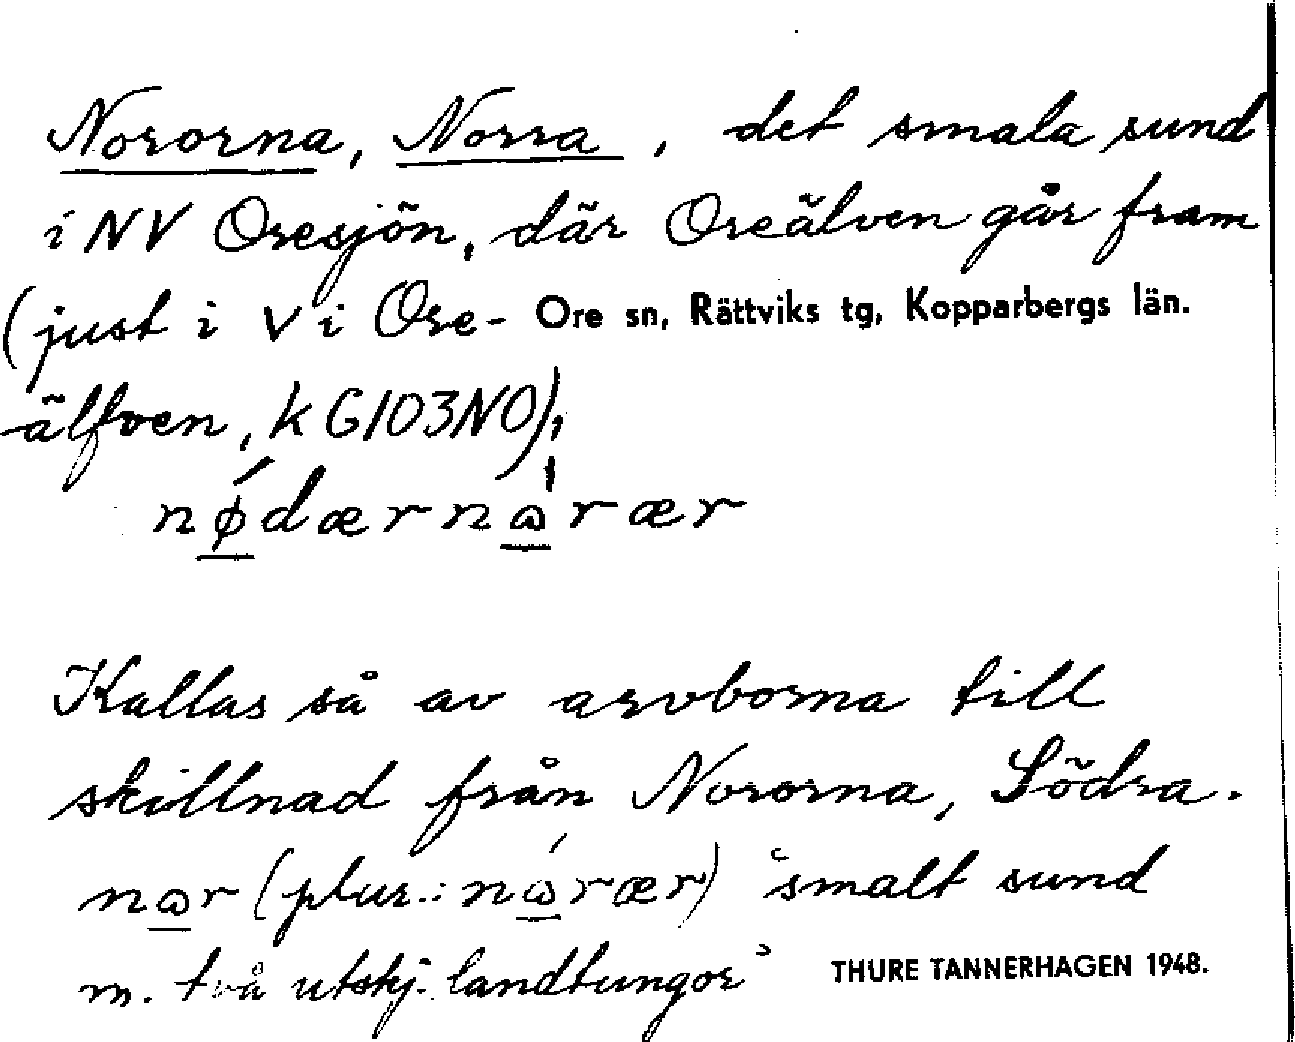 Nororna, Norra, det smala sund
i NV Oresjön, där Oreälven går fram
(just i V i Ore- Ore sn, Rättviks tg, Kopparbergs län.
älfven, k G103NO),
nǿdærnὼrær
Kallas så av arvborna till
skillnad från Nororna, Södra.
nωr (plur.: nώrær) ʿsmalt sund
m. två utskj. landtungorʾ THURE TANNERHAGEN 1948.